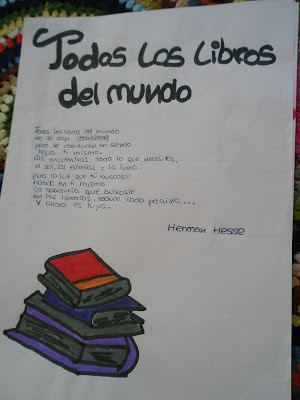 Todos Los Libros
del mundo
Todos los libros del mundo
no te dan
pero te conducen en secreto
hacia ti mismo.
Allí encuentras todo lo que necesitas,
el sol, las estrellas y la luna.
pues la luz que tú buscaste
habita en ti mismo
La sabiduría que buscaste
en las librerías, reluce cada página...
Y ahora es tuya.
Herman Hesse